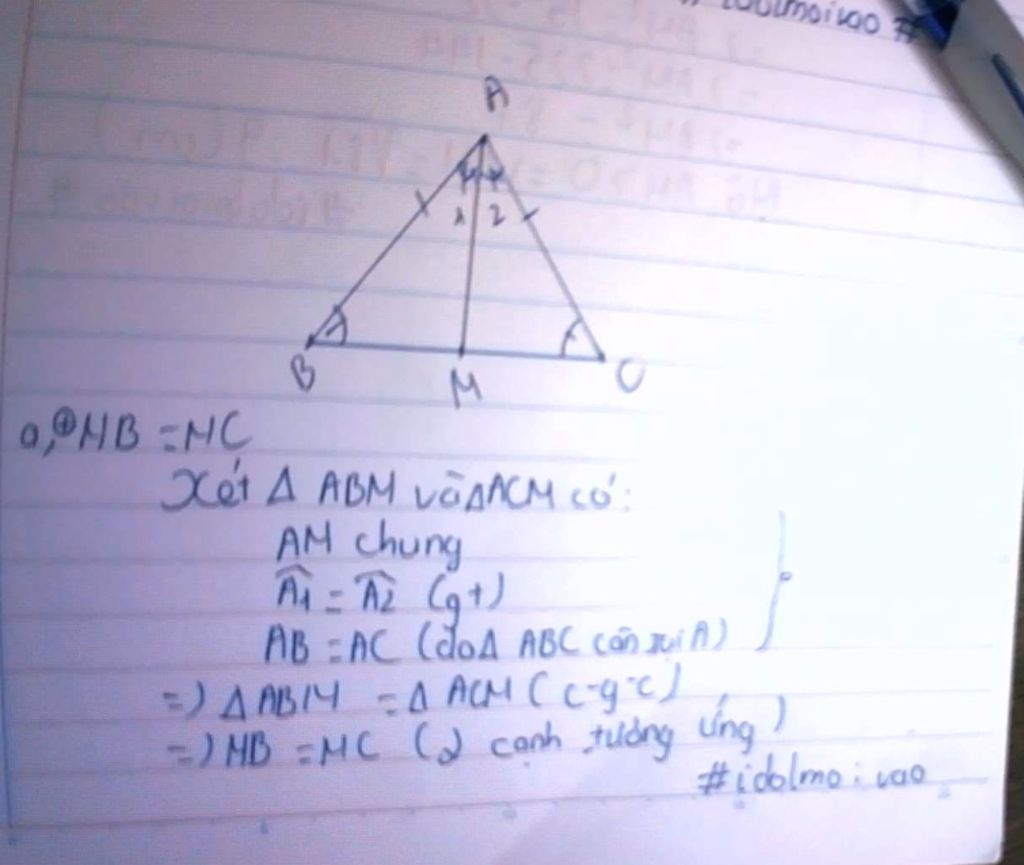 idolmoivao #
A
1 2
B
M
C
a, ⊕ MB = MC
Xét Δ ABM và Δ ACM có:
AM chung
Â1 = Â2 (gt)
AB = AC (do Δ ABC cân tại A)
=) Δ ABM = Δ ACM (c-g-c)
=) MB = MC (2 cạnh tương ứng)
#idolmoivao